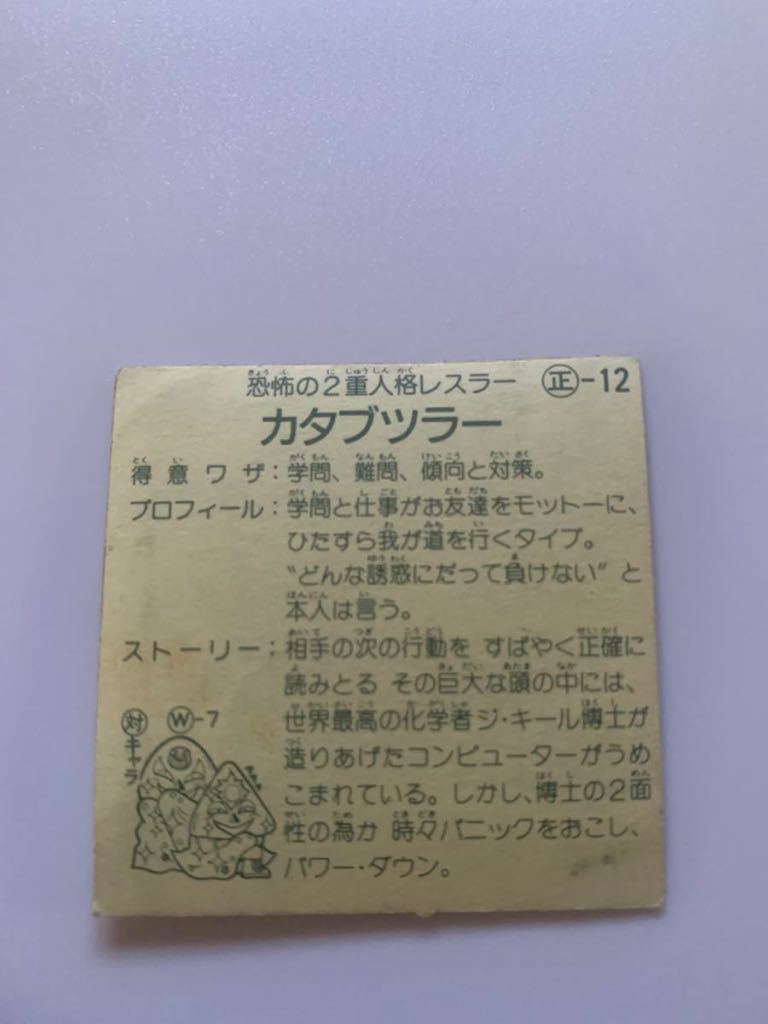 恐怖の2重人格レスラー 正-12
カタブツラー
得意ワザ:学問、難問、傾向と対策。
プロフィール:学問と仕事がお友達をモットーに、
ひたすら我が道を行くタイプ。
"どんな誘惑にだって負けない"と
本人は言う。
ストーリー:相手の次の行動を すばやく正確に
読みとる その巨大な頭の中には、
世界最高の化学者ジ・キール博士が
造りあげたコンピューターがうめ
こまれている。しかし、博士の2面
性の為か 時々パニックをおこし、
パワー・ダウン。
対キャラ W-7